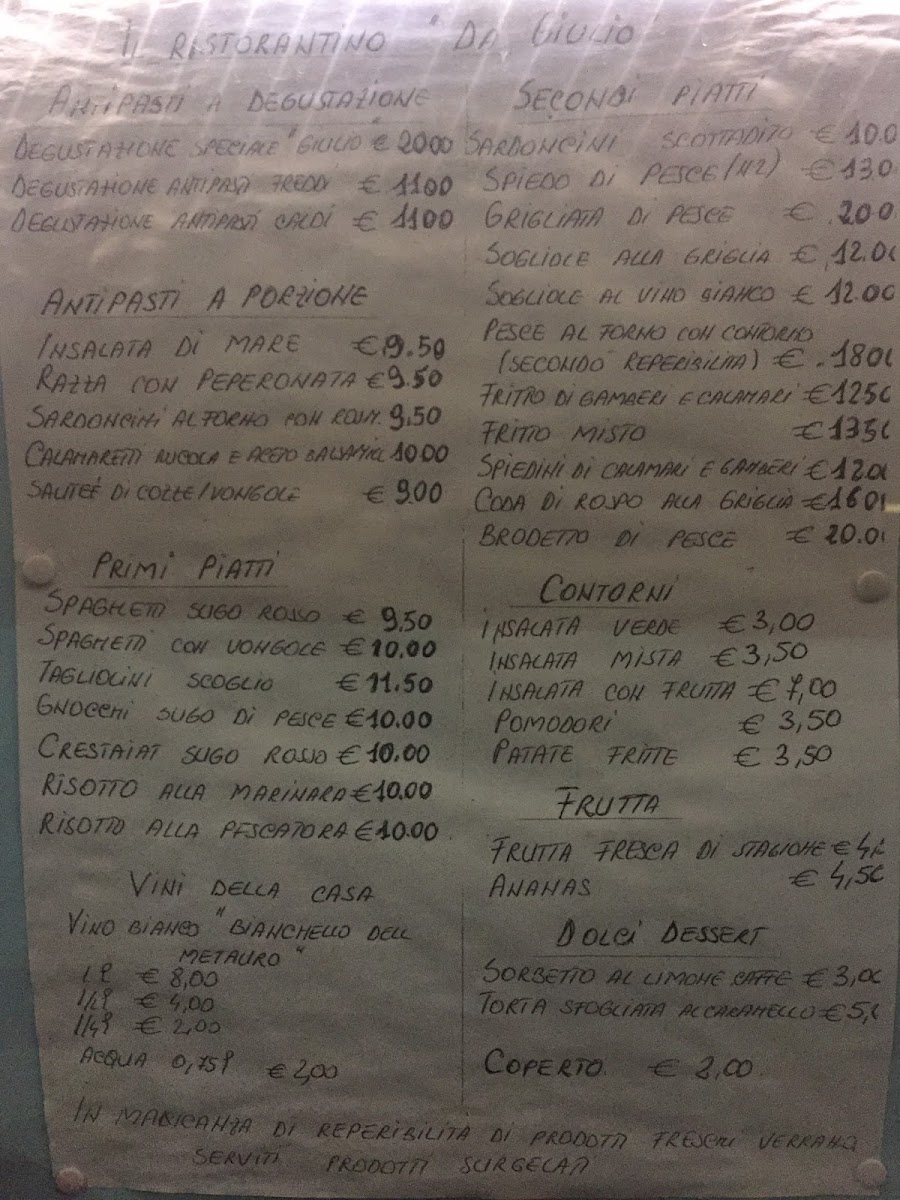 IL RISTORANTINO "DA GIULIO
ANTIPASTI A DEGUSTAZIONE
DEGUSTAZIONE SPECIALE "GIULIO" € 2000
DEGUSTAZIONE ANTIPASTI FREDDI € 1100
DEGUSTAZIONE ANTIPASTI CALDI € 1100
ANTIPASTI A PORZIONE
INSALATA DI MARE € 9.50
RAZZA CON PEPERONATA € 9.50
SARDONCINI AL FORNO CON ROSM. 9.50
CALAMARETTI RUCOLA E ACETO BALSAMIC 10.00
SALITEÉ DI COZZE/VONGOLE € 9.00
PRIMI PIATTI
SPAGHETTI SUGO ROSSO € 9.50
SPAGHETTI CON VONGOLE € 10.00
TAGLIOLINI SCOGLIO € 11.50
GNOCCHI SUGO DI PESCE € 10.00
CRESTAIAT SUGO ROSSO € 10.00
RISOTTO ALLA MARINARA € 10.00
RISOTTO ALLA PESCATORA € 10.00
VINI DELLA CASA
VINO BIANCO "BIANCHELLO DELL
METAURO"
1 l € 8,00
1/2 l € 4,00
1/4 l € 2,00
ACQUA 0,75 l € 2,00
SECONDI PIATTI
SARDONCINI SCOTTADITO € 10.0
SPIEDO DI PESCE (N2) € 13.0
GRIGLIATA DI PESCE € 20.0
SOGLIOLE ALLA GRIGLIA € 12.00
SOGLIOLE AL VINO BIANCO € 12.00
PESCE AL FORNO CON CONTORNO
(SECONDO REPERIBILITA) € 18.00
FRITTO DI GAMBERI E CALAMARI € 12.50
FRITTO MISTO € 13.50
SPIEDINI DI CALAMARI E GAMBERI € 12.00
CODA DI ROSPO ALLA GRIGLIA € 16.00
BRODETTO DI PESCE € 20.0
CONTORNI
INSALATA VERDE € 3,00
INSALATA MISTA € 3,50
INSALATA CON FRUTTA € 7,00
POMODORI € 3,50
PATATE FRITTE € 3,50
FRUTTA
FRUTTA FRESCA DI STAGIONE €
ANANAS € 4,50
DOLCI DESSERT
SORBETTO AL LIMONE CAFFE € 3,00
TORTA SFOGLIATA AL CARAMELLO € 5,
COPERTO. € 2,00.
IN MANCANZA DI REPERIBILITA DI PRODOTTI FRESCHI VERRANO
SERVITI PRODOTTI SURGELATI